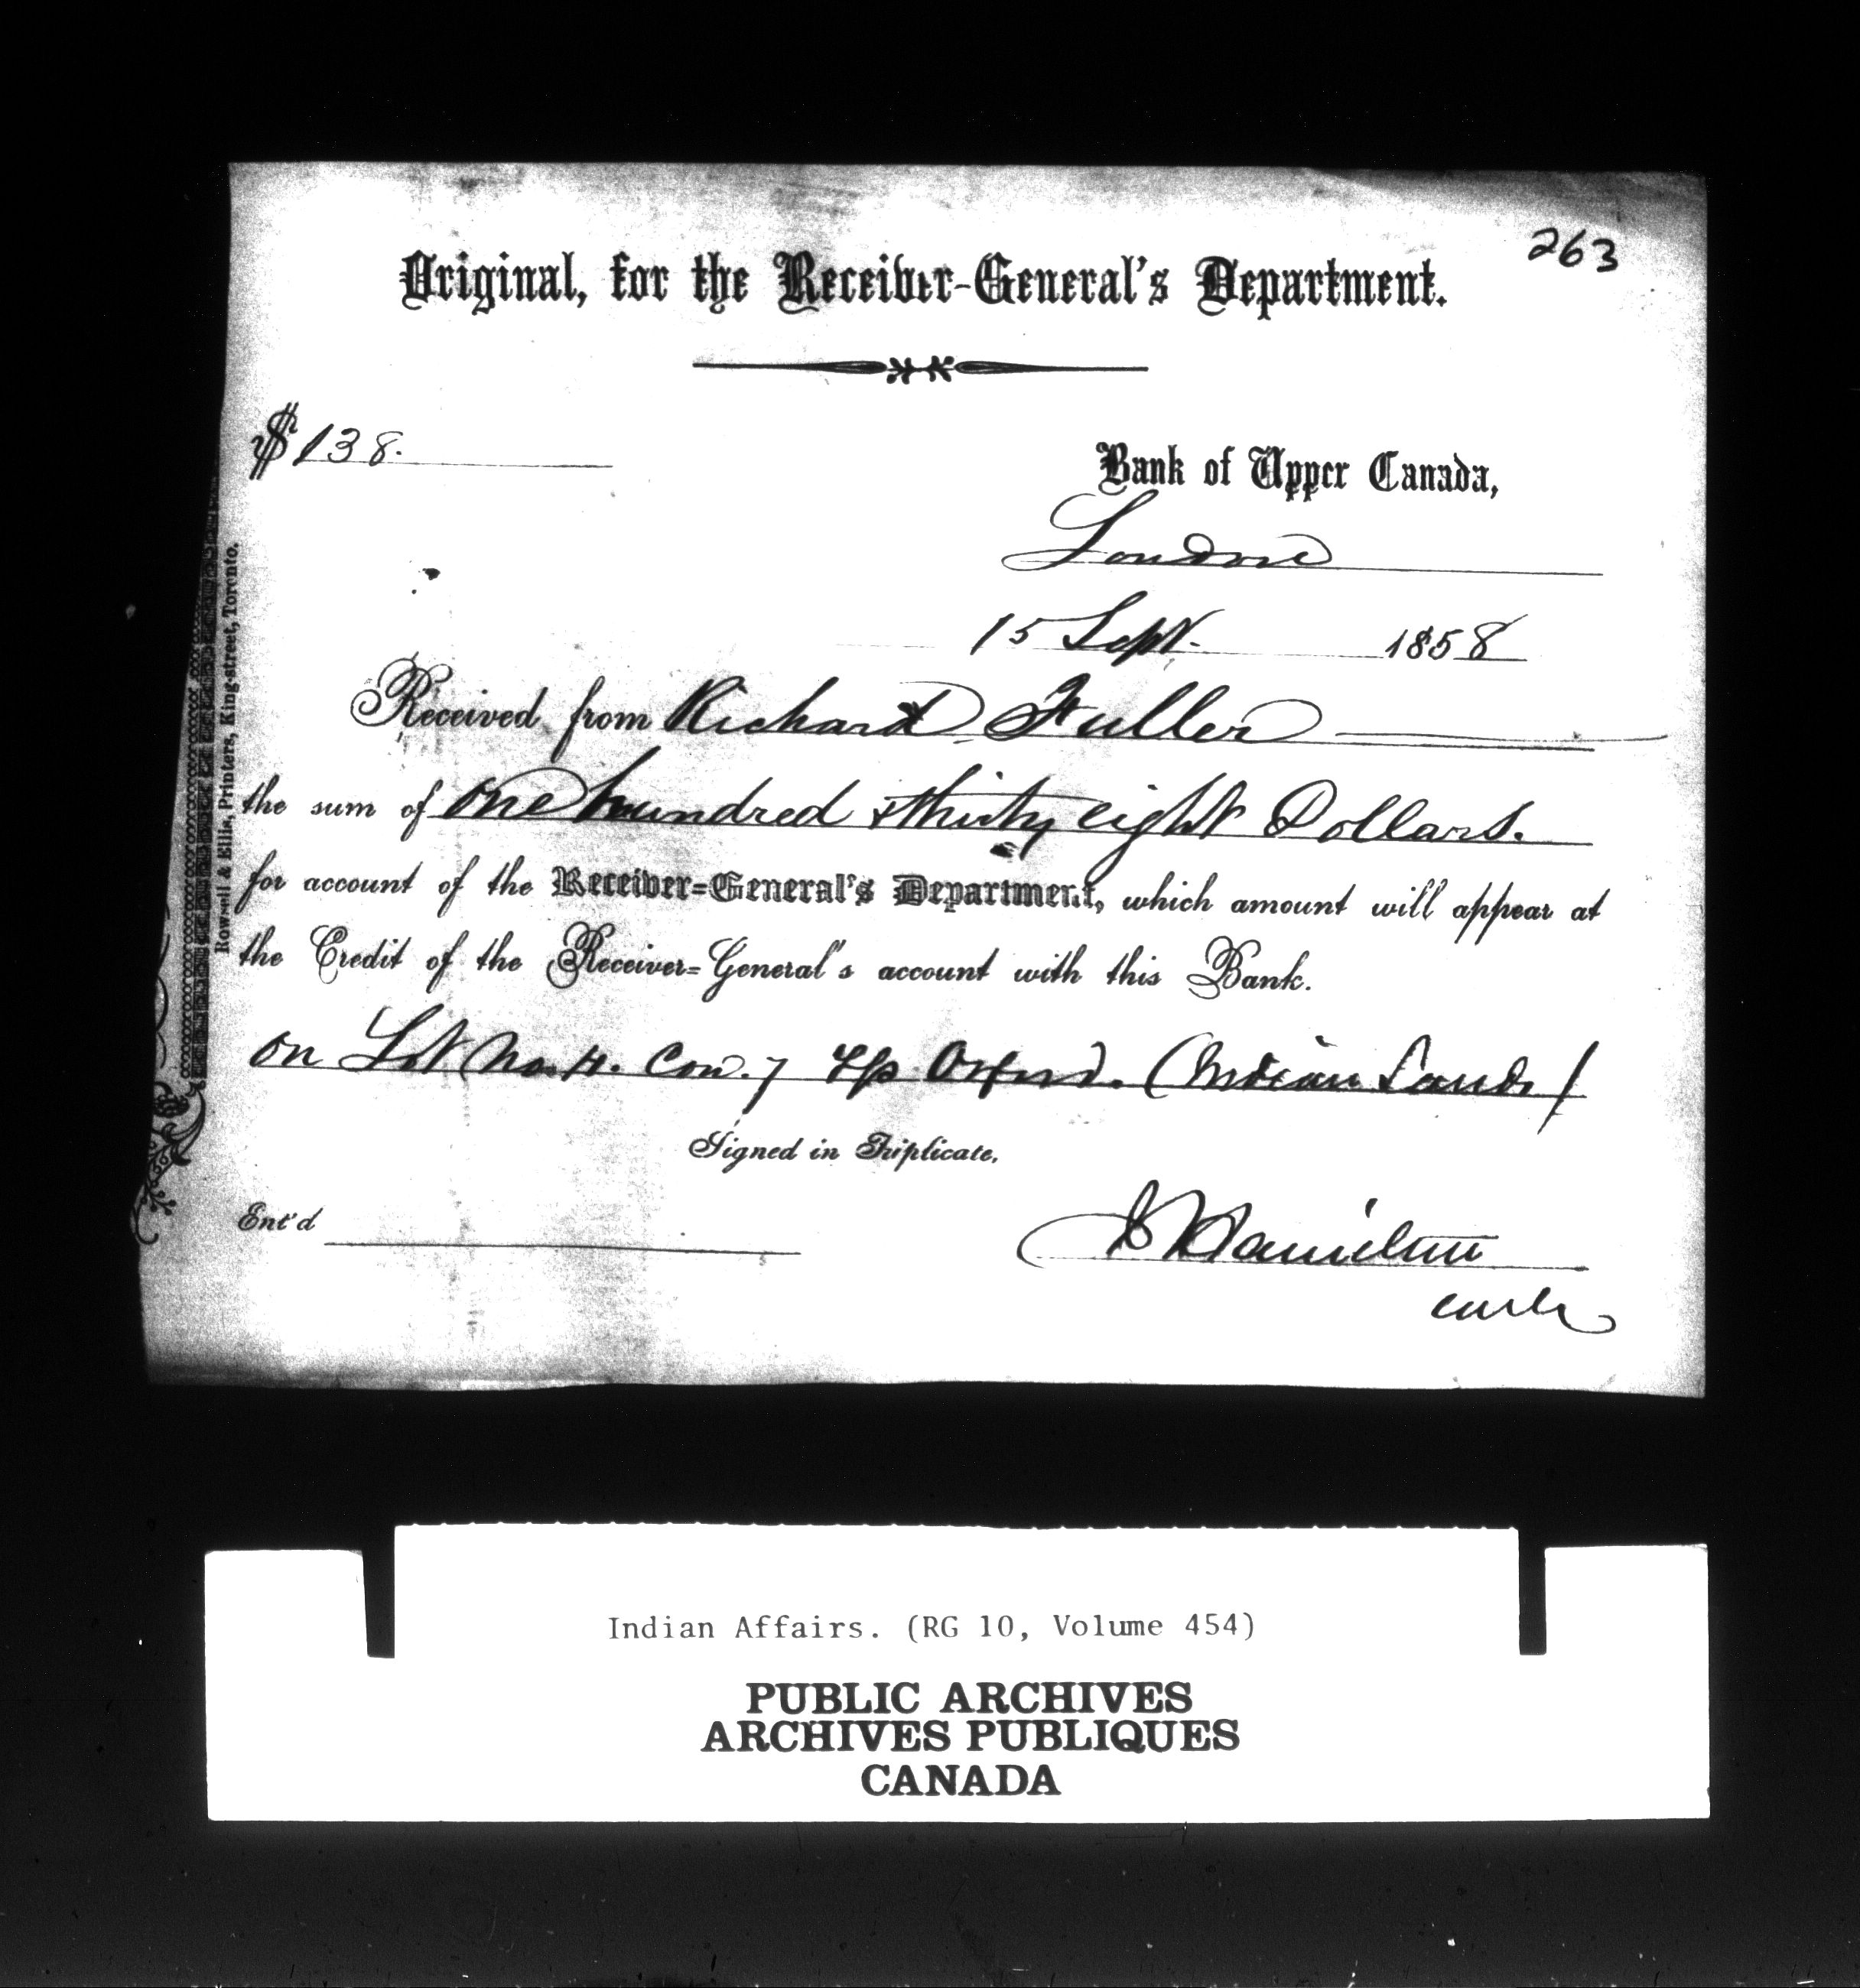 263
Original, for the Receiver-General's Department.
$138.
Bank of Upper Canada,
London
15 Sept. 1858
Received from Richard Fuller
the sum of One hundred & thirty eight Dollars.
for account of the Receiver=General's Department, which amount will appear at
the Credit of the Receiver=General's account with this Bank.
on Lot No. 4. Con. 7 Tp Orford. (Indian Lands)
Signed in Triplicate,
Ent'd
Hamilton
Rowsell & Ellis, Printers, King-street, Toronto.
Indian Affairs. (RG 10, Volume 454)
PUBLIC ARCHIVES
ARCHIVES PUBLIQUES
CANADA